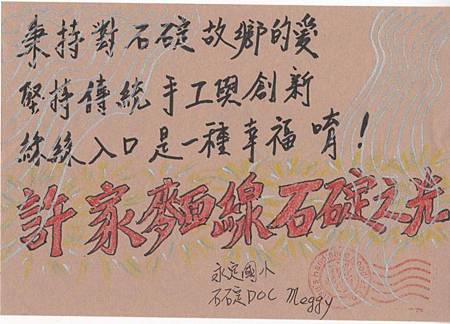 秉持對石碇故鄉的愛
堅持傳統手工與創新
絲絲入口是一種幸福唷！
許家麵線石碇之光
永定國小
石碇DOC Meggy